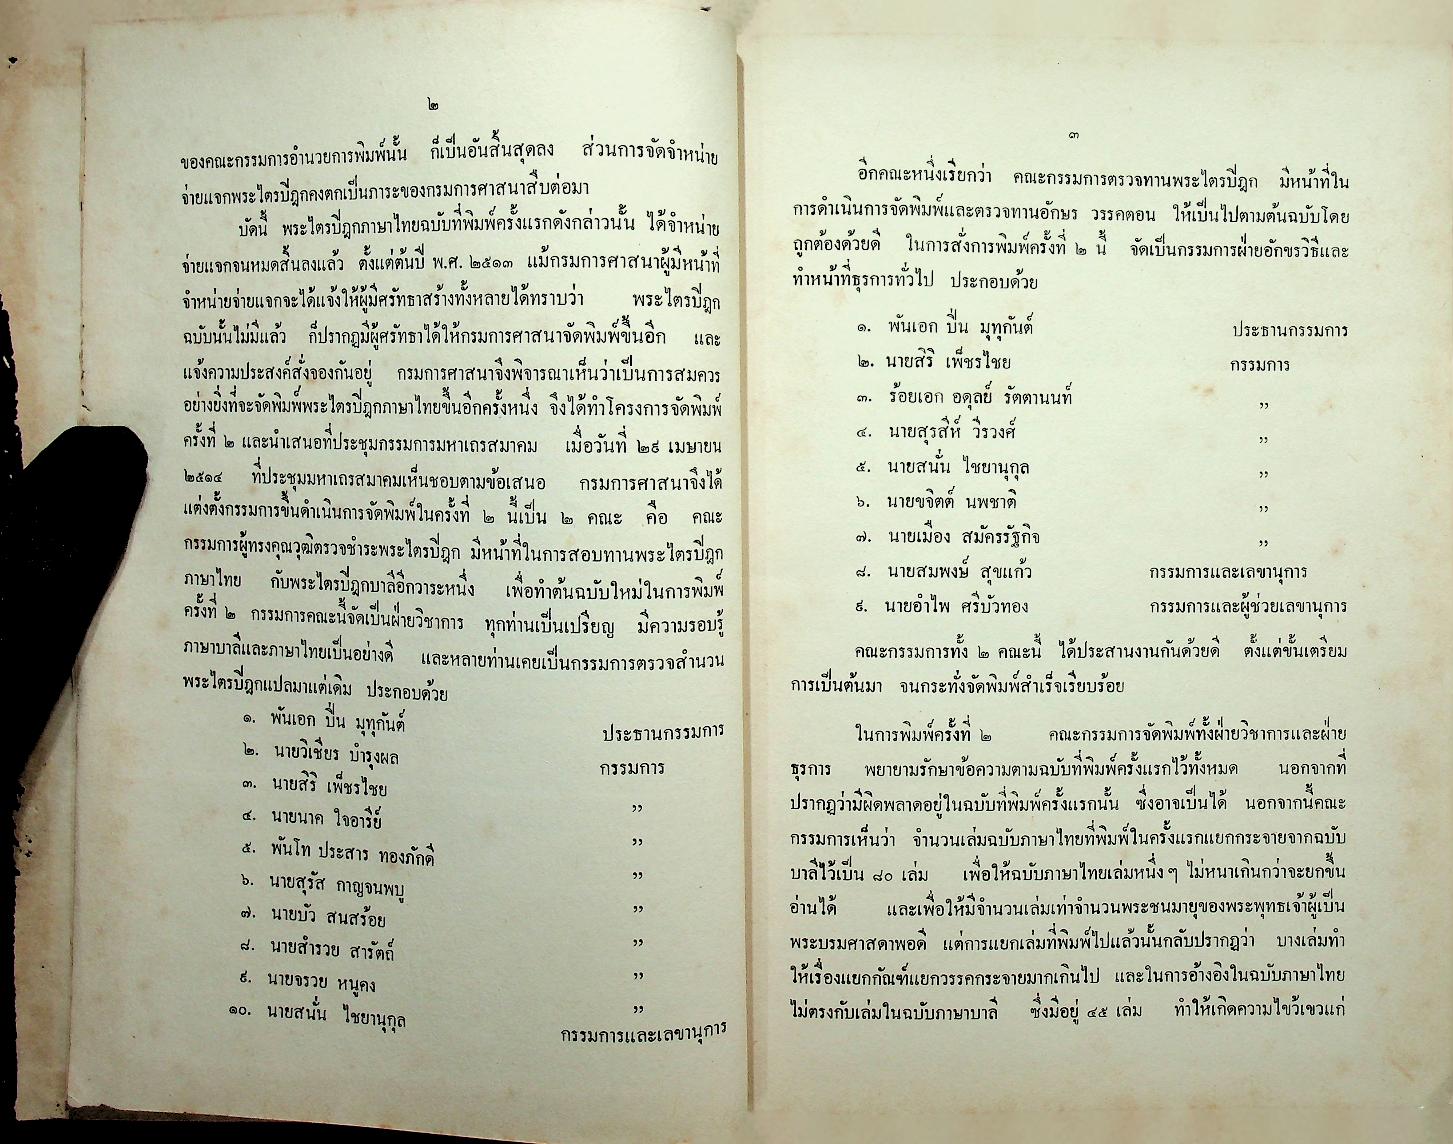 ๒
ของคณะกรรมการอำนวยการพิมพ์นั้น ก็เป็นอันสิ้นสุดลง ส่วนการจัดจำหน่าย
จ่ายแจกพระไตรปิฎกคงตกเป็นภาระของกรมการศาสนาสืบต่อมา
บัดนี้ พระไตรปิฎกภาษาไทยฉบับที่พิมพ์ครั้งแรกดังกล่าวนั้น ได้จำหน่าย
จ่ายแจกจนหมดสิ้นลงแล้ว ตั้งแต่ต้นปี พ.ศ. ๒๕๑๓ แม้กรมการศาสนาผู้มีหน้าที่
จำหน่ายจ่ายแจกจะได้แจ้งให้ผู้มีศรัทธาสร้างทั้งหลายได้ทราบว่า พระไตรปิฎก
ฉบับนั้นไม่มีแล้ว ก็ปรากฏมีผู้ศรัทธาได้ให้กรมการศาสนาจัดพิมพ์ขึ้นอีก และ
แจ้งความประสงค์สั่งจองกันอยู่ กรมการศาสนาจึงพิจารณาเห็นว่าเป็นการสมควร
อย่างยิ่งที่จะจัดพิมพ์พระไตรปิฎกภาษาไทยขึ้นอีกครั้งหนึ่ง จึงได้ทำโครงการจัดพิมพ์
ครั้งที่ ๒ และนำเสนอที่ประชุมกรรมการมหาเถรสมาคม เมื่อวันที่ ๒๙ เมษายน
๒๕๑๔ ที่ประชุมมหาเถรสมาคมเห็นชอบตามข้อเสนอ กรมการศาสนาจึงได้
แต่งตั้งกรรมการขึ้นดำเนินการจัดพิมพ์ในครั้งที่ ๒ นี้เป็น ๒ คณะ คือ คณะ
กรรมการผู้ทรงคุณวุฒิตรวจชำระพระไตรปิฎก มีหน้าที่ในการสอบทานพระไตรปิฎก
ภาษาไทย กับพระไตรปิฎกบาลีอีกวาระหนึ่ง เพื่อทำต้นฉบับใหม่ในการพิมพ์
ครั้งที่ ๒ กรรมการคณะนี้จัดเป็นฝ่ายวิชาการ ทุกท่านเป็นเปรียญ มีความรอบรู้
ภาษาบาลีและภาษาไทยเป็นอย่างดี และหลายท่านเคยเป็นกรรมการตรวจสำนวน
พระไตรปิฎกแปลมาแต่เดิม ประกอบด้วย
๑. พันเอก ปิ่น มุทุกันต์ ประธานกรรมการ
๒. นายวิเชียร บำรุงผล กรรมการ
๓. นายสิริ เพ็ชรไชย ”
๔. นายนาค ใจอารีย์ ”
๕. พันโท ประสาร ทองภักดี ”
๖. นายสุรัส กาญจนพบู ”
๗. นายบัว สนสร้อย ”
๘. นายสำรวย สารัตถ์ ”
๙. นายจรวย หนูคง ”
๑๐. นายสนั่น ไชยานุกุล กรรมการและเลขานุการ
๓
อีกคณะหนึ่งเรียกว่า คณะกรรมการตรวจทานพระไตรปิฎก มีหน้าที่ใน
การดำเนินการจัดพิมพ์และตรวจทานอักษร วรรคตอน ให้เป็นไปตามต้นฉบับโดย
ถูกต้องด้วยดี ในการสั่งการพิมพ์ครั้งที่ ๒ นี้ จัดเป็นกรรมการฝ่ายอักขรวิธีและ
ทำหน้าที่ธุรการทั่วไป ประกอบด้วย
๑. พันเอก ปิ่น มุทุกันต์ ประธานกรรมการ
๒. นายสิริ เพ็ชรไชย กรรมการ
๓. ร้อยเอก อดุลย์ รัตตานนท์ ”
๔. นายสุรสีห์ วีรวงศ์ ”
๕. นายสนั่น ไชยานุกุล ”
๖. นายขจิตต์ นพชาติ ”
๗. นายเมือง สมัครรัฐกิจ ”
๘. นายสมพงษ์ สุขแก้ว กรรมการและเลขานุการ
๙. นายอำไพ ศรีบัวทอง กรรมการและผู้ช่วยเลขานุการ
คณะกรรมการทั้ง ๒ คณะนี้ ได้ประสานงานกันด้วยดี ตั้งแต่ขั้นเตรียม
การเป็นต้นมา จนกระทั่งจัดพิมพ์สำเร็จเรียบร้อย
ในการพิมพ์ครั้งที่ ๒ คณะกรรมการจัดพิมพ์ทั้งฝ่ายวิชาการและฝ่าย
ธุรการ พยายามรักษาข้อความตามฉบับที่พิมพ์ครั้งแรกไว้ทั้งหมด นอกจากที่
ปรากฏว่ามีผิดพลาดอยู่ในฉบับที่พิมพ์ครั้งแรกนั้น ซึ่งอาจเป็นได้ นอกจากนี้คณะ
กรรมการเห็นว่า จำนวนเล่มฉบับภาษาไทยที่พิมพ์ในครั้งแรกแยกกระจายจากฉบับ
บาลีไว้เป็น ๘๐ เล่ม เพื่อให้ฉบับภาษาไทยเล่มหนึ่งๆ ไม่หนาเกินกว่าจะยกขึ้น
อ่านได้ และเพื่อให้มีจำนวนเล่มเท่าจำนวนพระชนมายุของพระพุทธเจ้าผู้เป็น
พระบรมศาสดาพอดี แต่การแยกเล่มที่พิมพ์ไปแล้วนั้นกลับปรากฏว่า บางเล่มทำ
ให้เรื่องแยกกัณฑ์แยกวรรคกระจายมากเกินไป และในการอ้างอิงในฉบับภาษาไทย
ไม่ตรงกับเล่มในฉบับภาษาบาลี ซึ่งมีอยู่ ๔๕ เล่ม ทำให้เกิดความไขว้เขวแก่